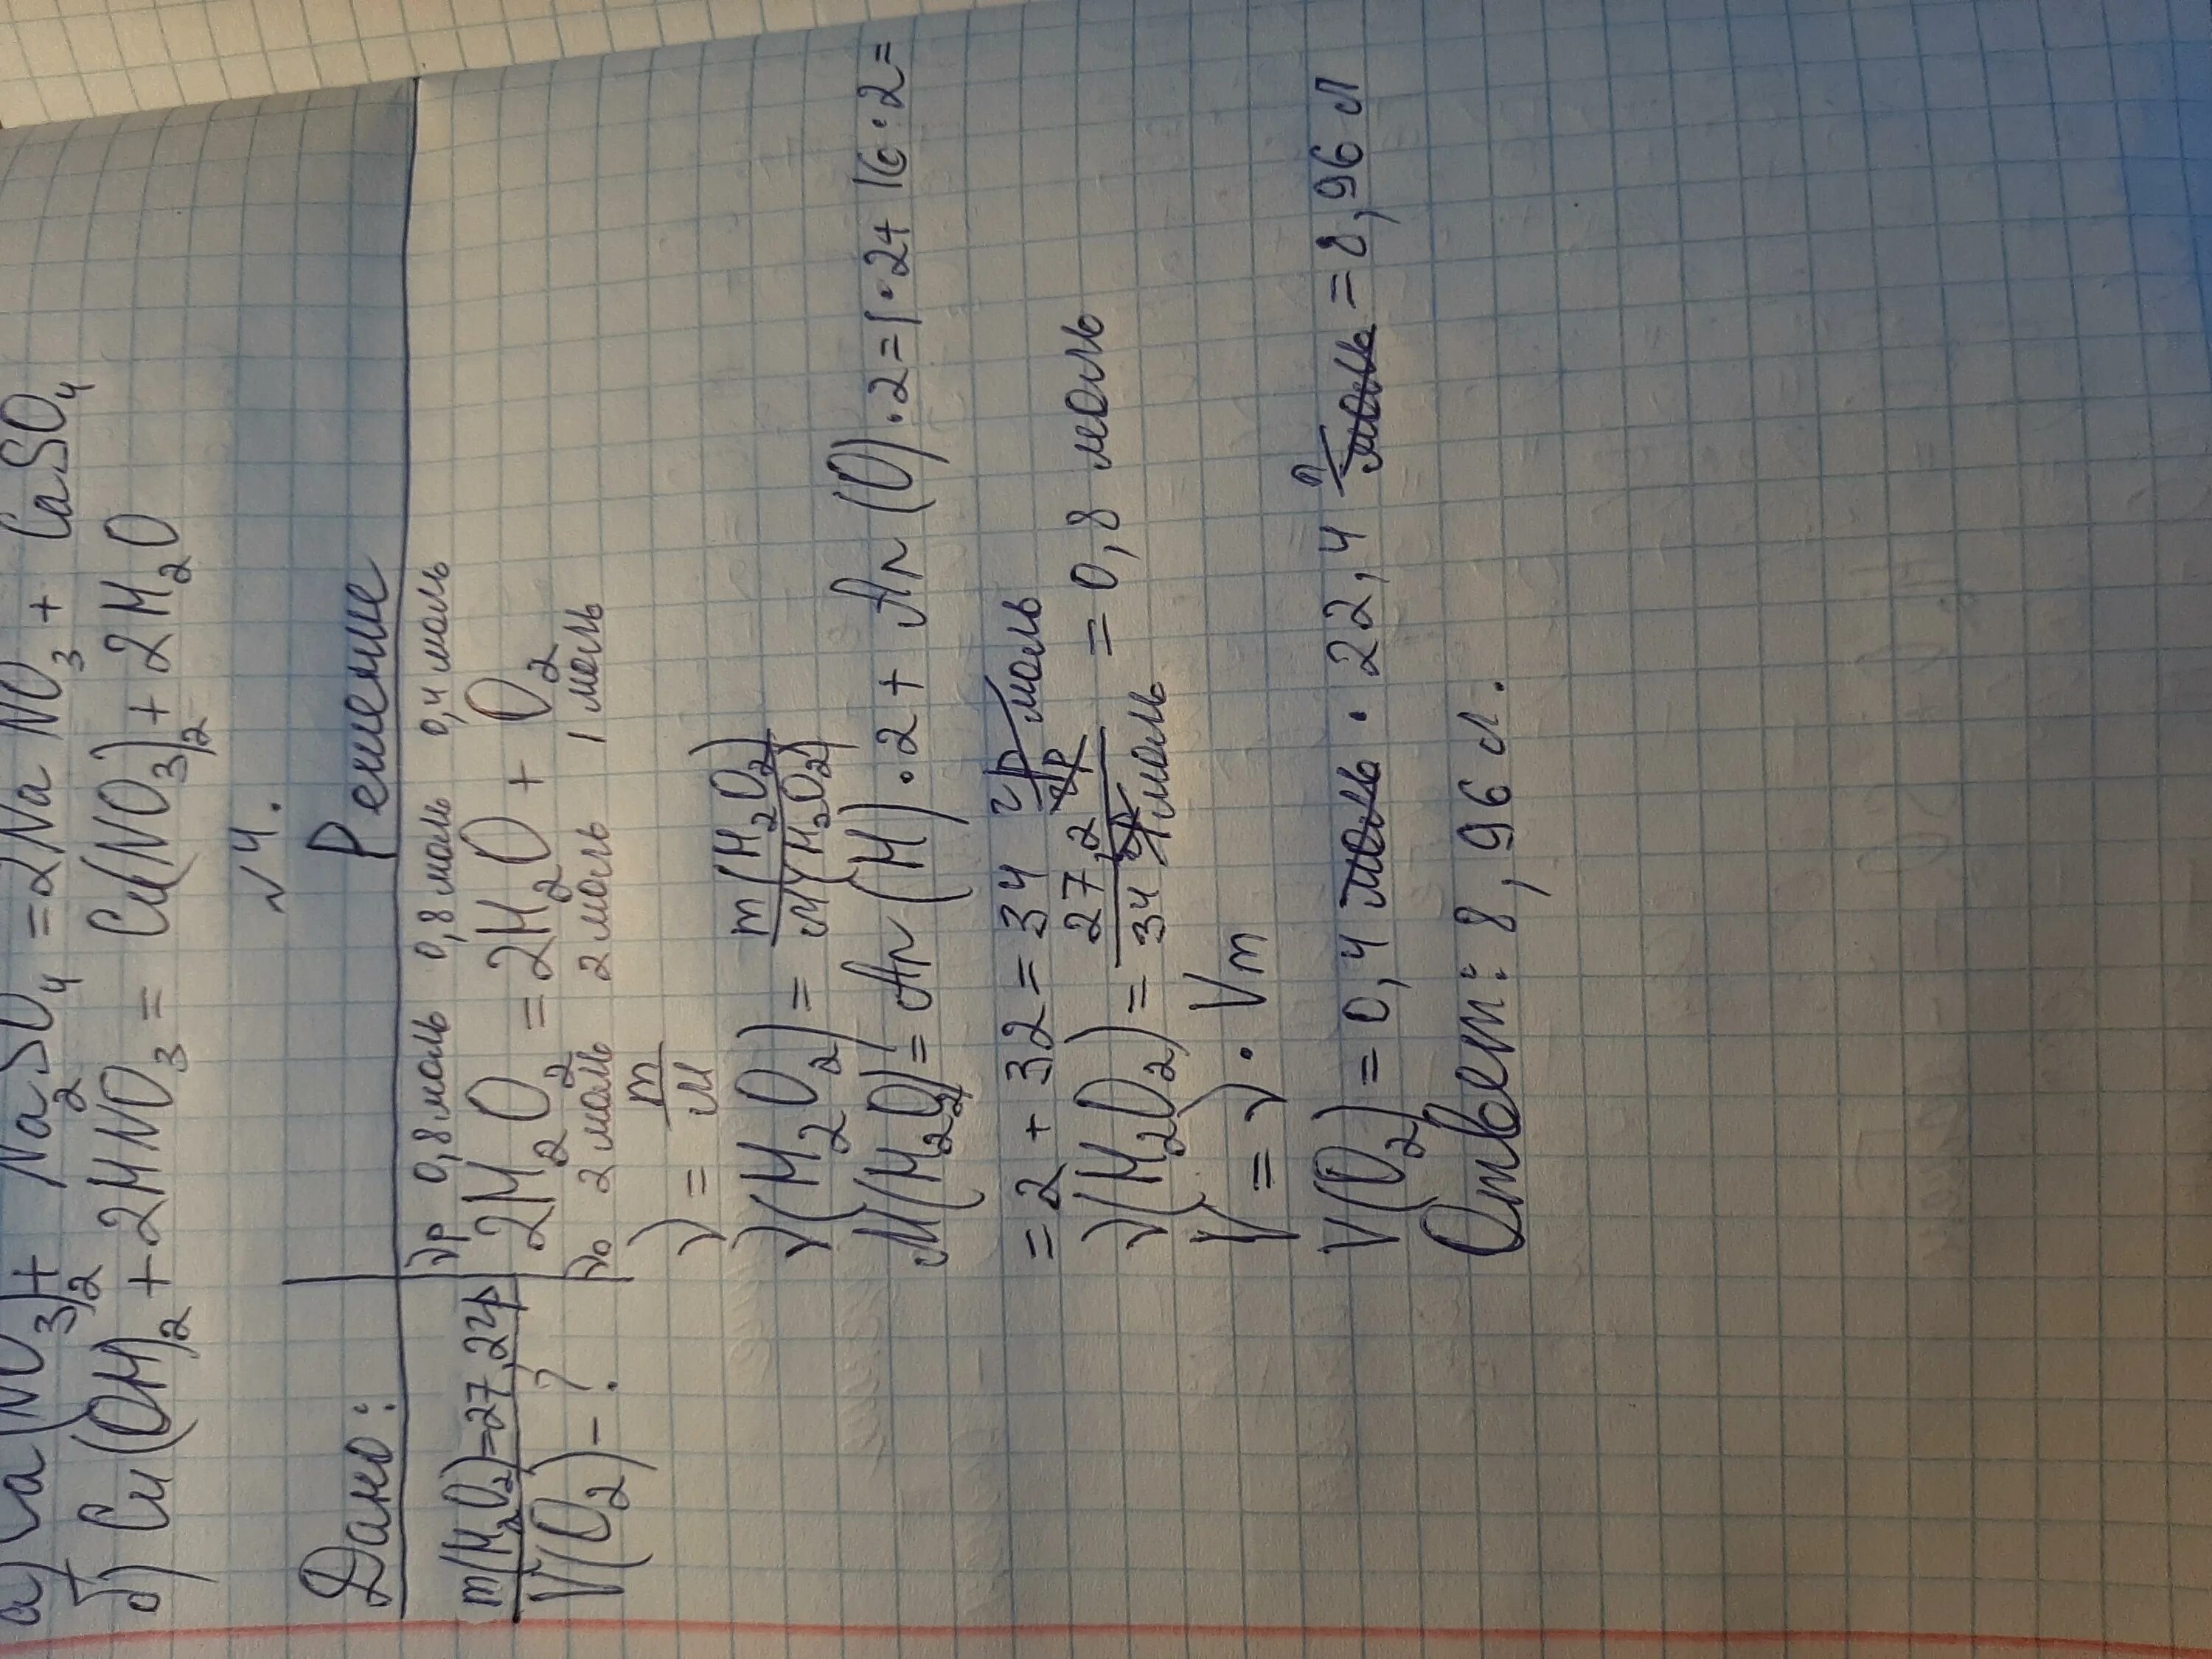 а) Ca(NO3)2 + Na2SO4 = 2NaNO3 + CaSO4
б) Cu(OH)2 + 2HNO3 = Cu(NO3)2 + 2H2O
№4.
Дано: Решение
m(H2O2)=27,2гр
V(O2)-?
νр 0,8моль 0,8моль 0,8моль 0,4моль
2H2O2 = 2H2O + O2
ν0 2моль 2моль 1моль
ν = m/M
ν(H2O2) = m(H2O2)/M(H2O2)
M(H2O2) = Ar(H)·2 + Ar(O)·2=1·2+16·2=
=2+32=34 гр/моль
ν(H2O2) = 27,2 гр/34 гр/моль = 0,8 моль
V = ν · Vm
V(O2) = 0,4 моль · 22,4 л/моль = 8,96 л
Ответ: 8,96 л.